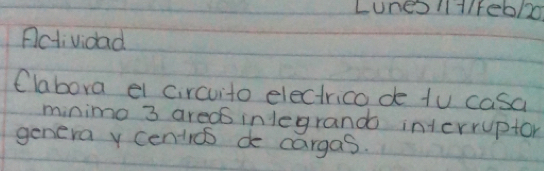 Lunes 17/feb/20
Actividad
Elabora el circuito electrico de tu casa
minimo 3 areas integrando interruptor
genera y centros de cargas.